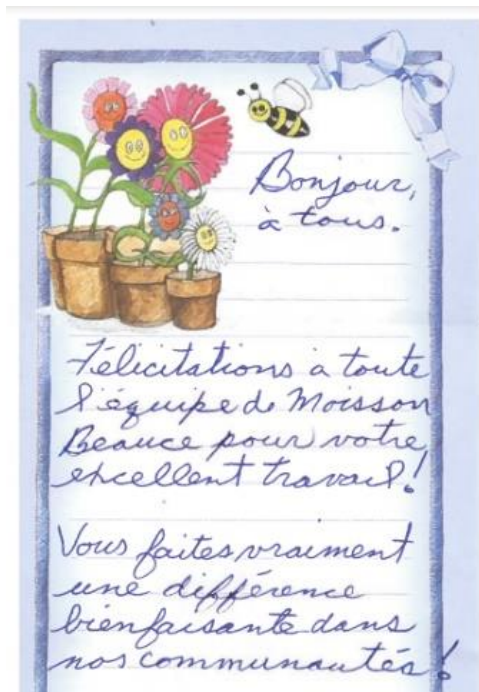 Bonjour,
à tous.
Félicitations à toute
l'équipe de Moisson
Beauce pour votre
excellent travail!
Vous faites vraiment
une différence
bienfaisante dans
nos communautés!